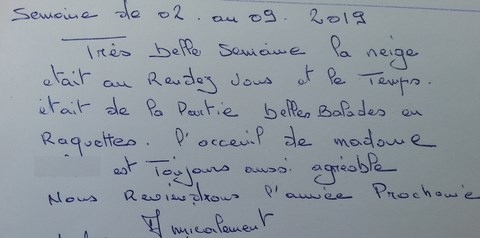 Semaine de 02. au 09. 2019
Très belle Semaine la neige
etait au Rendez Vous et le Temps.
était de la Partie belles Balades en
Raquettes. l'acceuil de madame
est Toujours aussi agréable
Nous Reviendrons l'année Prochaine
Amicalement